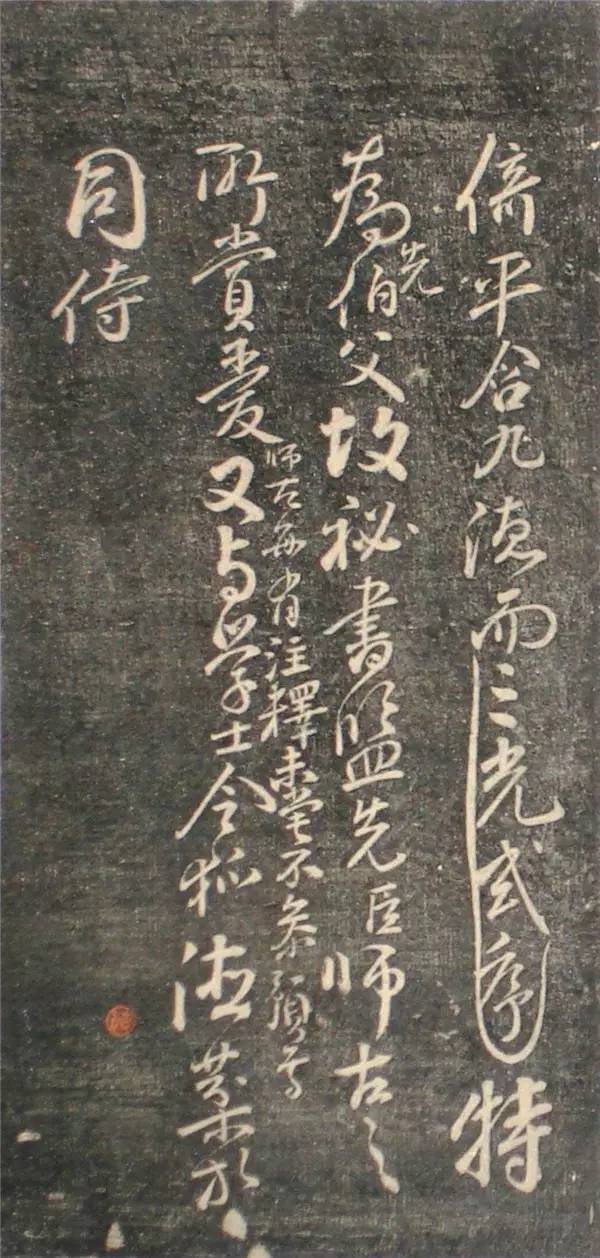 平合九德而三光式序特
為先伯父故祕書監先臣師古之
師古每有注釋未嘗不參預焉
所賞愛又与學士令狐德棻於
同侍